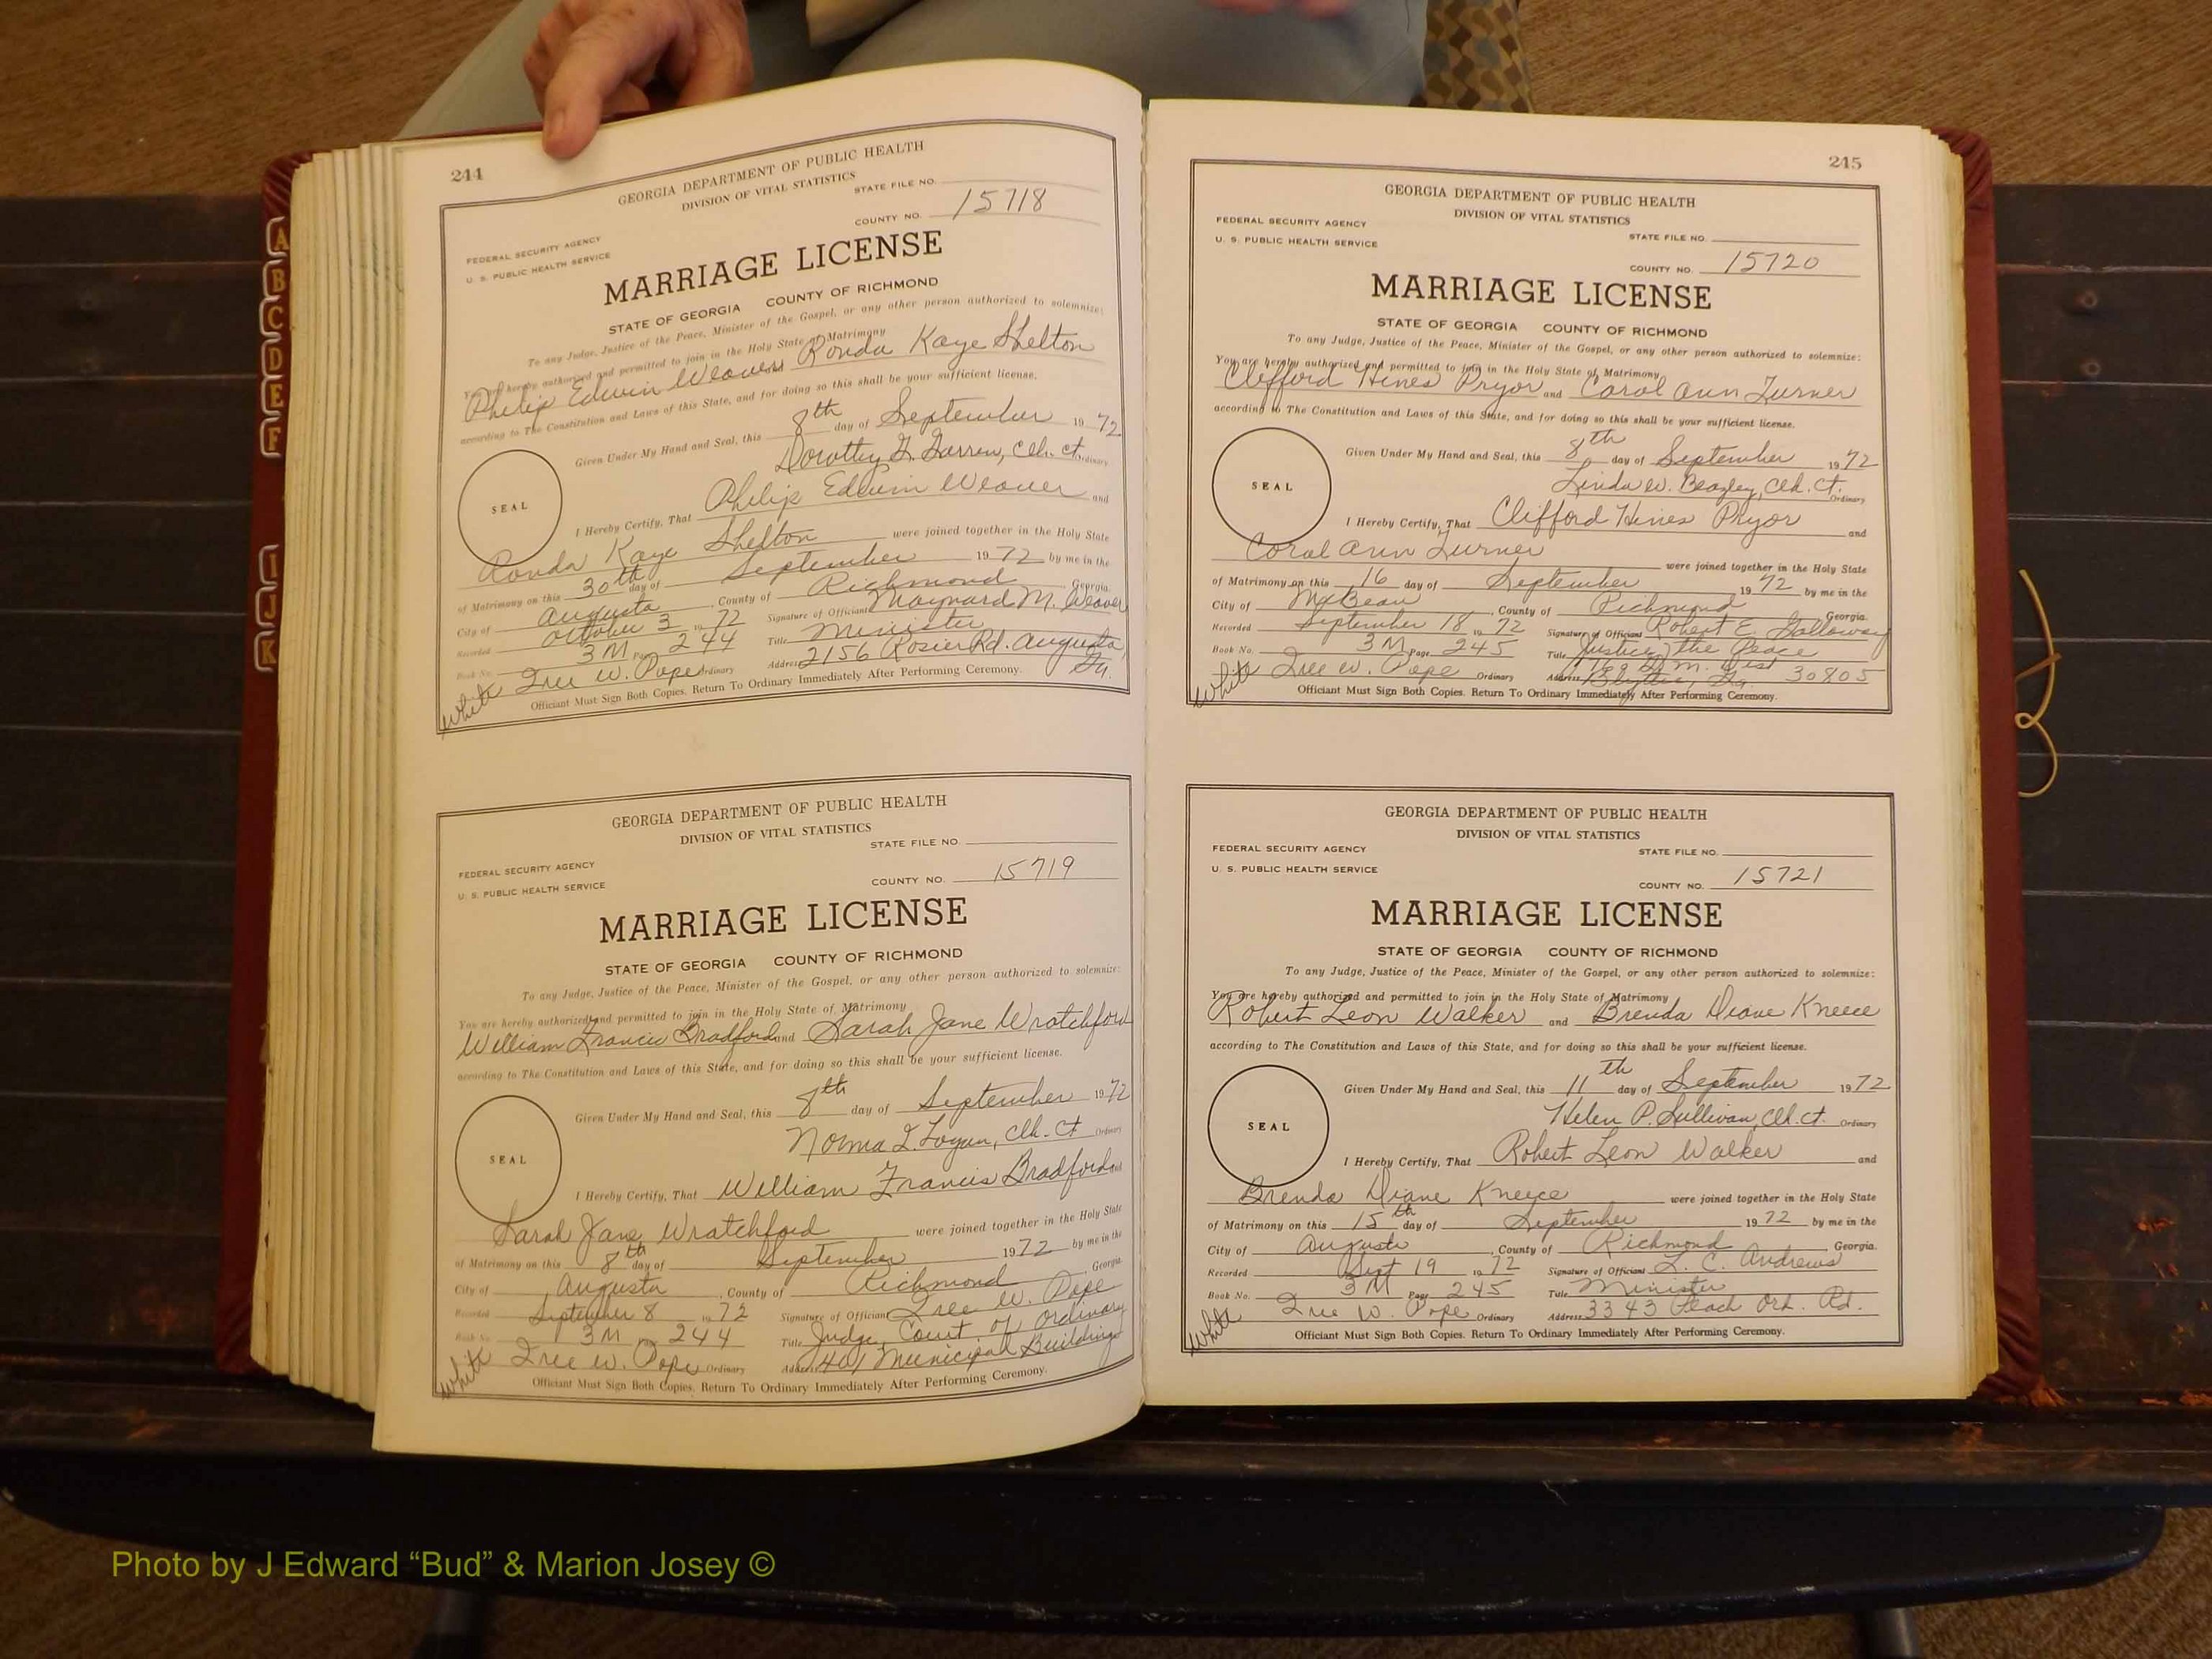 A
B
C
D
E
F
I
J
K
244
GEORGIA DEPARTMENT OF PUBLIC HEALTH
DIVISION OF VITAL STATISTICS
STATE FILE NO.
COUNTY NO. 15718
FEDERAL SECURITY AGENCY
U. S. PUBLIC HEALTH SERVICE
MARRIAGE LICENSE
STATE OF GEORGIA COUNTY OF RICHMOND
To any Judge, Justice of the Peace, Minister of the Gospel, or any other person authorized to solemnize:
You are hereby authorized and permitted to join in the Holy State of Matrimony
Philip Edwin Weaver Ronda Kaye Shelton
according to The Constitution and Laws of this State, and for doing so this shall be your sufficient license.
Given Under My Hand and Seal, this 8th day of September 1972
Dorothy Clk. Ct. Ordinary
SEAL
I Hereby Certify, That Philip Edwin Weaver and
Ronda Kaye Shelton were joined together in the Holy State
of Matrimony on this 30th day of September 1972 by me in the
City of Augusta, County of Richmond, Georgia.
Recorded October 3 1972 Signature of Officiant Maynard M. Weaver
Book No. 3M Page 244 Title Minister
W. Pope Ordinary Address 2156 Rosier Rd. Augusta, Ga.
White
Officiant Must Sign Both Copies. Return To Ordinary Immediately After Performing Ceremony.
GEORGIA DEPARTMENT OF PUBLIC HEALTH
DIVISION OF VITAL STATISTICS
STATE FILE NO.
FEDERAL SECURITY AGENCY
U. S. PUBLIC HEALTH SERVICE
COUNTY NO. 15719
MARRIAGE LICENSE
STATE OF GEORGIA COUNTY OF RICHMOND
To any Judge, Justice of the Peace, Minister of the Gospel, or any other person authorized to solemnize:
You are hereby authorized and permitted to join in the Holy State of Matrimony
William Francis Bradford and Sarah Jane Wratchford
according to The Constitution and Laws of this State, and for doing so this shall be your sufficient license.
Given Under My Hand and Seal, this 8th day of September 1972
Norma Clk. Ct Ordinary
SEAL
I Hereby Certify, That William Francis Bradford and
Sarah Jane Wratchford were joined together in the Holy State
of Matrimony on this 8th day of September 1972 by me in the
City of Augusta, County of Richmond Georgia.
Recorded September 8 1972 Signature of Officiant W. Pope
Book No. 3M Page 244 Title Judge, Court of Ordinary
W. Pope Ordinary Address 401 Municipal Building
White
Officiant Must Sign Both Copies. Return To Ordinary Immediately After Performing Ceremony.
245
GEORGIA DEPARTMENT OF PUBLIC HEALTH
DIVISION OF VITAL STATISTICS
FEDERAL SECURITY AGENCY
U. S. PUBLIC HEALTH SERVICE
STATE FILE NO.
COUNTY NO. 15720
MARRIAGE LICENSE
STATE OF GEORGIA COUNTY OF RICHMOND
To any Judge, Justice of the Peace, Minister of the Gospel, or any other person authorized to solemnize:
You are hereby authorized and permitted to join in the Holy State of Matrimony
Clifford Hines Pryor and Carol Ann Turner
according to The Constitution and Laws of this State, and for doing so this shall be your sufficient license.
Given Under My Hand and Seal, this 8th day of September 1972
Linda W. Beazley, Clk. Ct. Ordinary
SEAL
I Hereby Certify, That Clifford Hines Pryor and
Carol Ann Turner were joined together in the Holy State
of Matrimony on this 16 day of September 1972 by me in the
City of McBean, County of Richmond Georgia.
Recorded September 18 1972 Signature of Officiant Robert E. Galloway
Book No. 3M Page 245 Title Justice of the Peace
W. Pope Ordinary Address G.M. Dist Blythe, Ga. 30805
White
Officiant Must Sign Both Copies. Return To Ordinary Immediately After Performing Ceremony.
GEORGIA DEPARTMENT OF PUBLIC HEALTH
DIVISION OF VITAL STATISTICS
FEDERAL SECURITY AGENCY
U. S. PUBLIC HEALTH SERVICE
STATE FILE NO.
COUNTY NO. 15721
MARRIAGE LICENSE
STATE OF GEORGIA COUNTY OF RICHMOND
To any Judge, Justice of the Peace, Minister of the Gospel, or any other person authorized to solemnize:
You are hereby authorized and permitted to join in the Holy State of Matrimony
Robert Leon Walker and Brenda Diane Kneece
according to The Constitution and Laws of this State, and for doing so this shall be your sufficient license.
Given Under My Hand and Seal, this 11th day of September 1972
Helen P. Sullivan, Clk. Ct. Ordinary
SEAL
I Hereby Certify, That Robert Leon Walker and
Brenda Diane Kneece were joined together in the Holy State
of Matrimony on this 15th day of September 1972 by me in the
City of Augusta, County of Richmond, Georgia.
Recorded Sept 19 1972 Signature of Officiant L. C. Andrews
Book No. 3M Page 245 Title Minister
W. Pope Ordinary Address 3343 Peach Orh. Rd.
White
Officiant Must Sign Both Copies. Return To Ordinary Immediately After Performing Ceremony.
Photo by J Edward “Bud” & Marion Josey ©